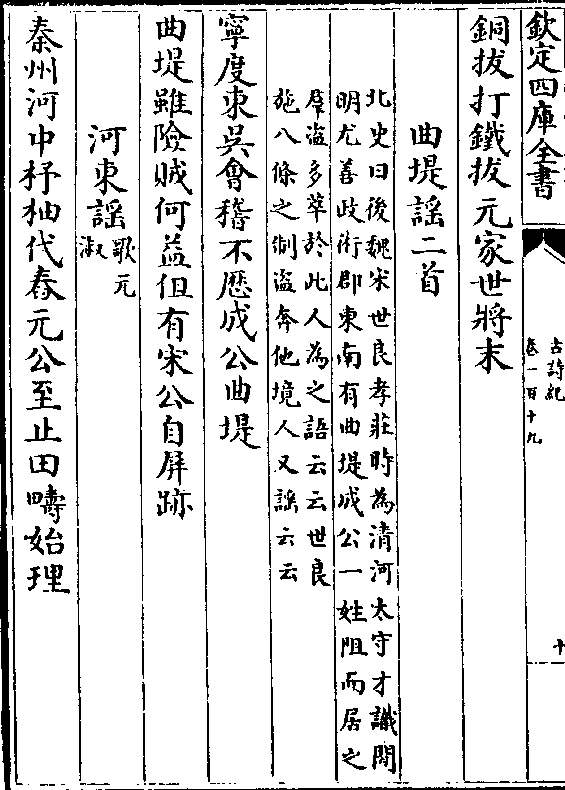 欽定四庫全書
古詩紀
卷一百十九
十
銅拔打鐵拔元家世將末
曲堤謠二首
北史曰後魏宋世良孝莊時為清河太守才識閒
明尤善政術郡東南有曲堤成公一姓阻而居之
羣盜多萃於此人為之語云云世良
施八條之制盜奔他境人又謠云云
寧度東吳會稽不歷成公曲堤
曲堤雖險賊何益但有宋公自屏跡
河東謠
歌元
淑
泰州河中杼柚代舂元公至止田疇始理